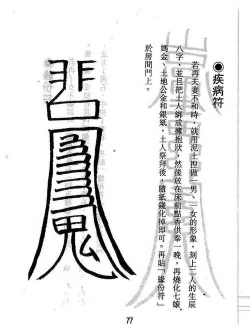 ●疾病符
若再夫妻不和時，就用泥土捏做一男、一女的形象，刻上二人的生辰
八字，並且把土人綁成擁抱狀，然後放在床前點香供奉一晚，再燒化七娘
媽金、土地公金和銀紙，土人祭拜後，隨紙錢化掉即可。再貼一緣份符
於房間門上。
77